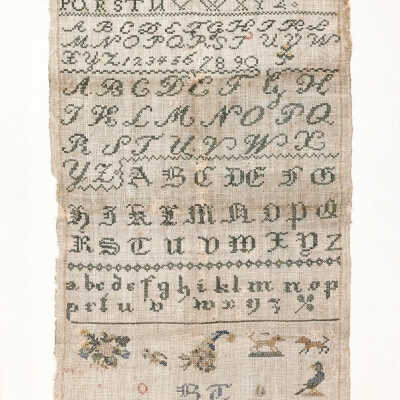 PQRSTUVWXYZ
ABCDEFGHIKL
MNOPQPSTUVW
XYZ1234567890
ABCDEFGH
IKLMNOPQ
RSTUVWX
YZ ABCDEFG
HIKLMNOPQ
RSTUVWXYZ
abcdefghiklmnop
qrstuvwxyz
BT